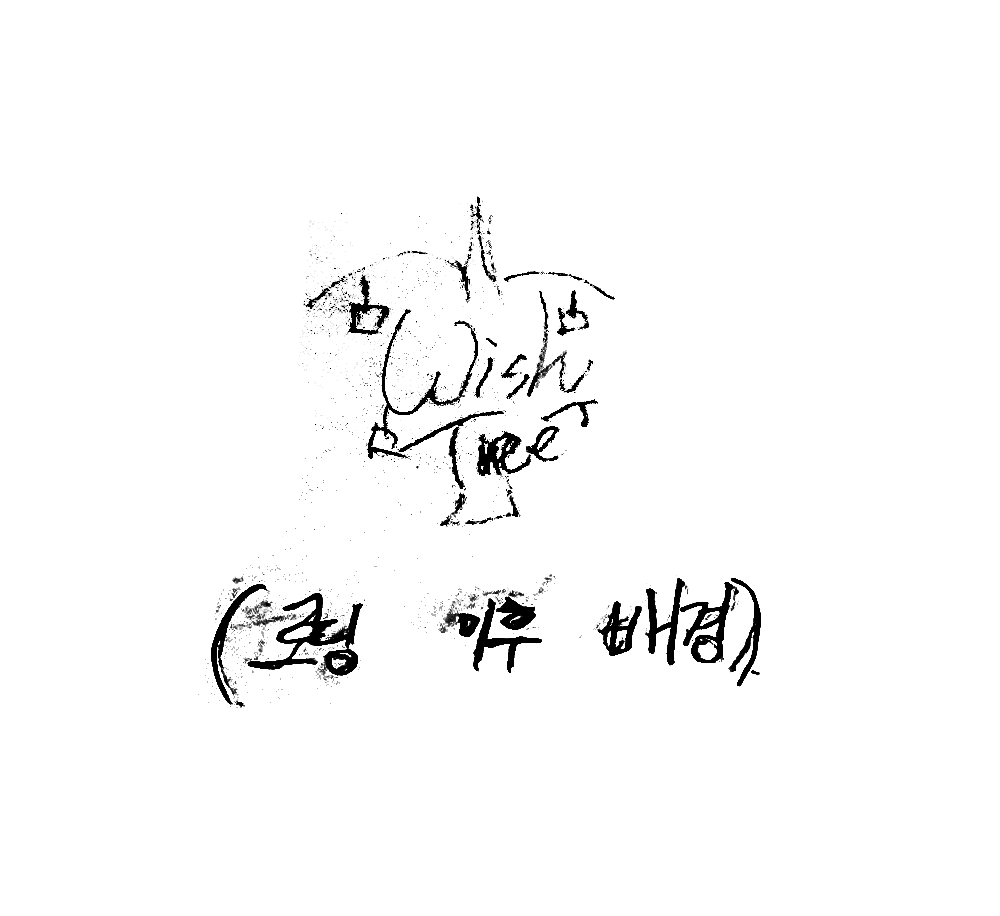 Wish
Tree
(로령 이후 배경)